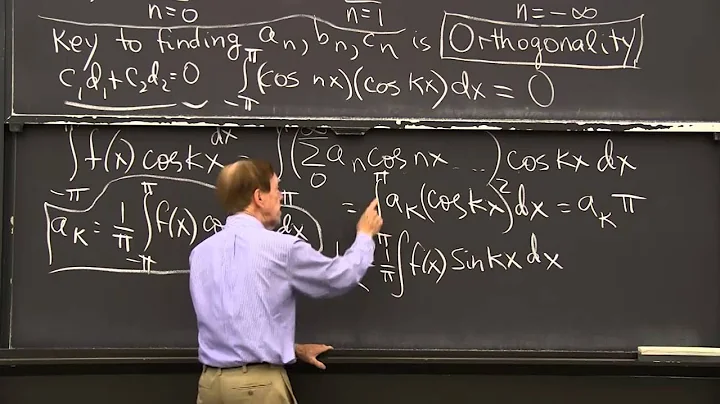 n=0 n=1 n=-∞
Key to finding a_n, b_n, c_n is Orthogonality
c_1d_1+c_2d_2=0 ∫_{-π}^{π}(cos nx)(cos kx)dx = 0
∫_{-π}^{π} f(x) cos kx dx = ∫(∑_0^∞ a_n cos nx ...) cos kx dx
= ∫^{π} a_k(cos kx)^2 dx = a_k π
a_k = 1/π ∫_{-π}^{π} f(x) co dx
1/π ∫^{π} f(x) sin kx dx